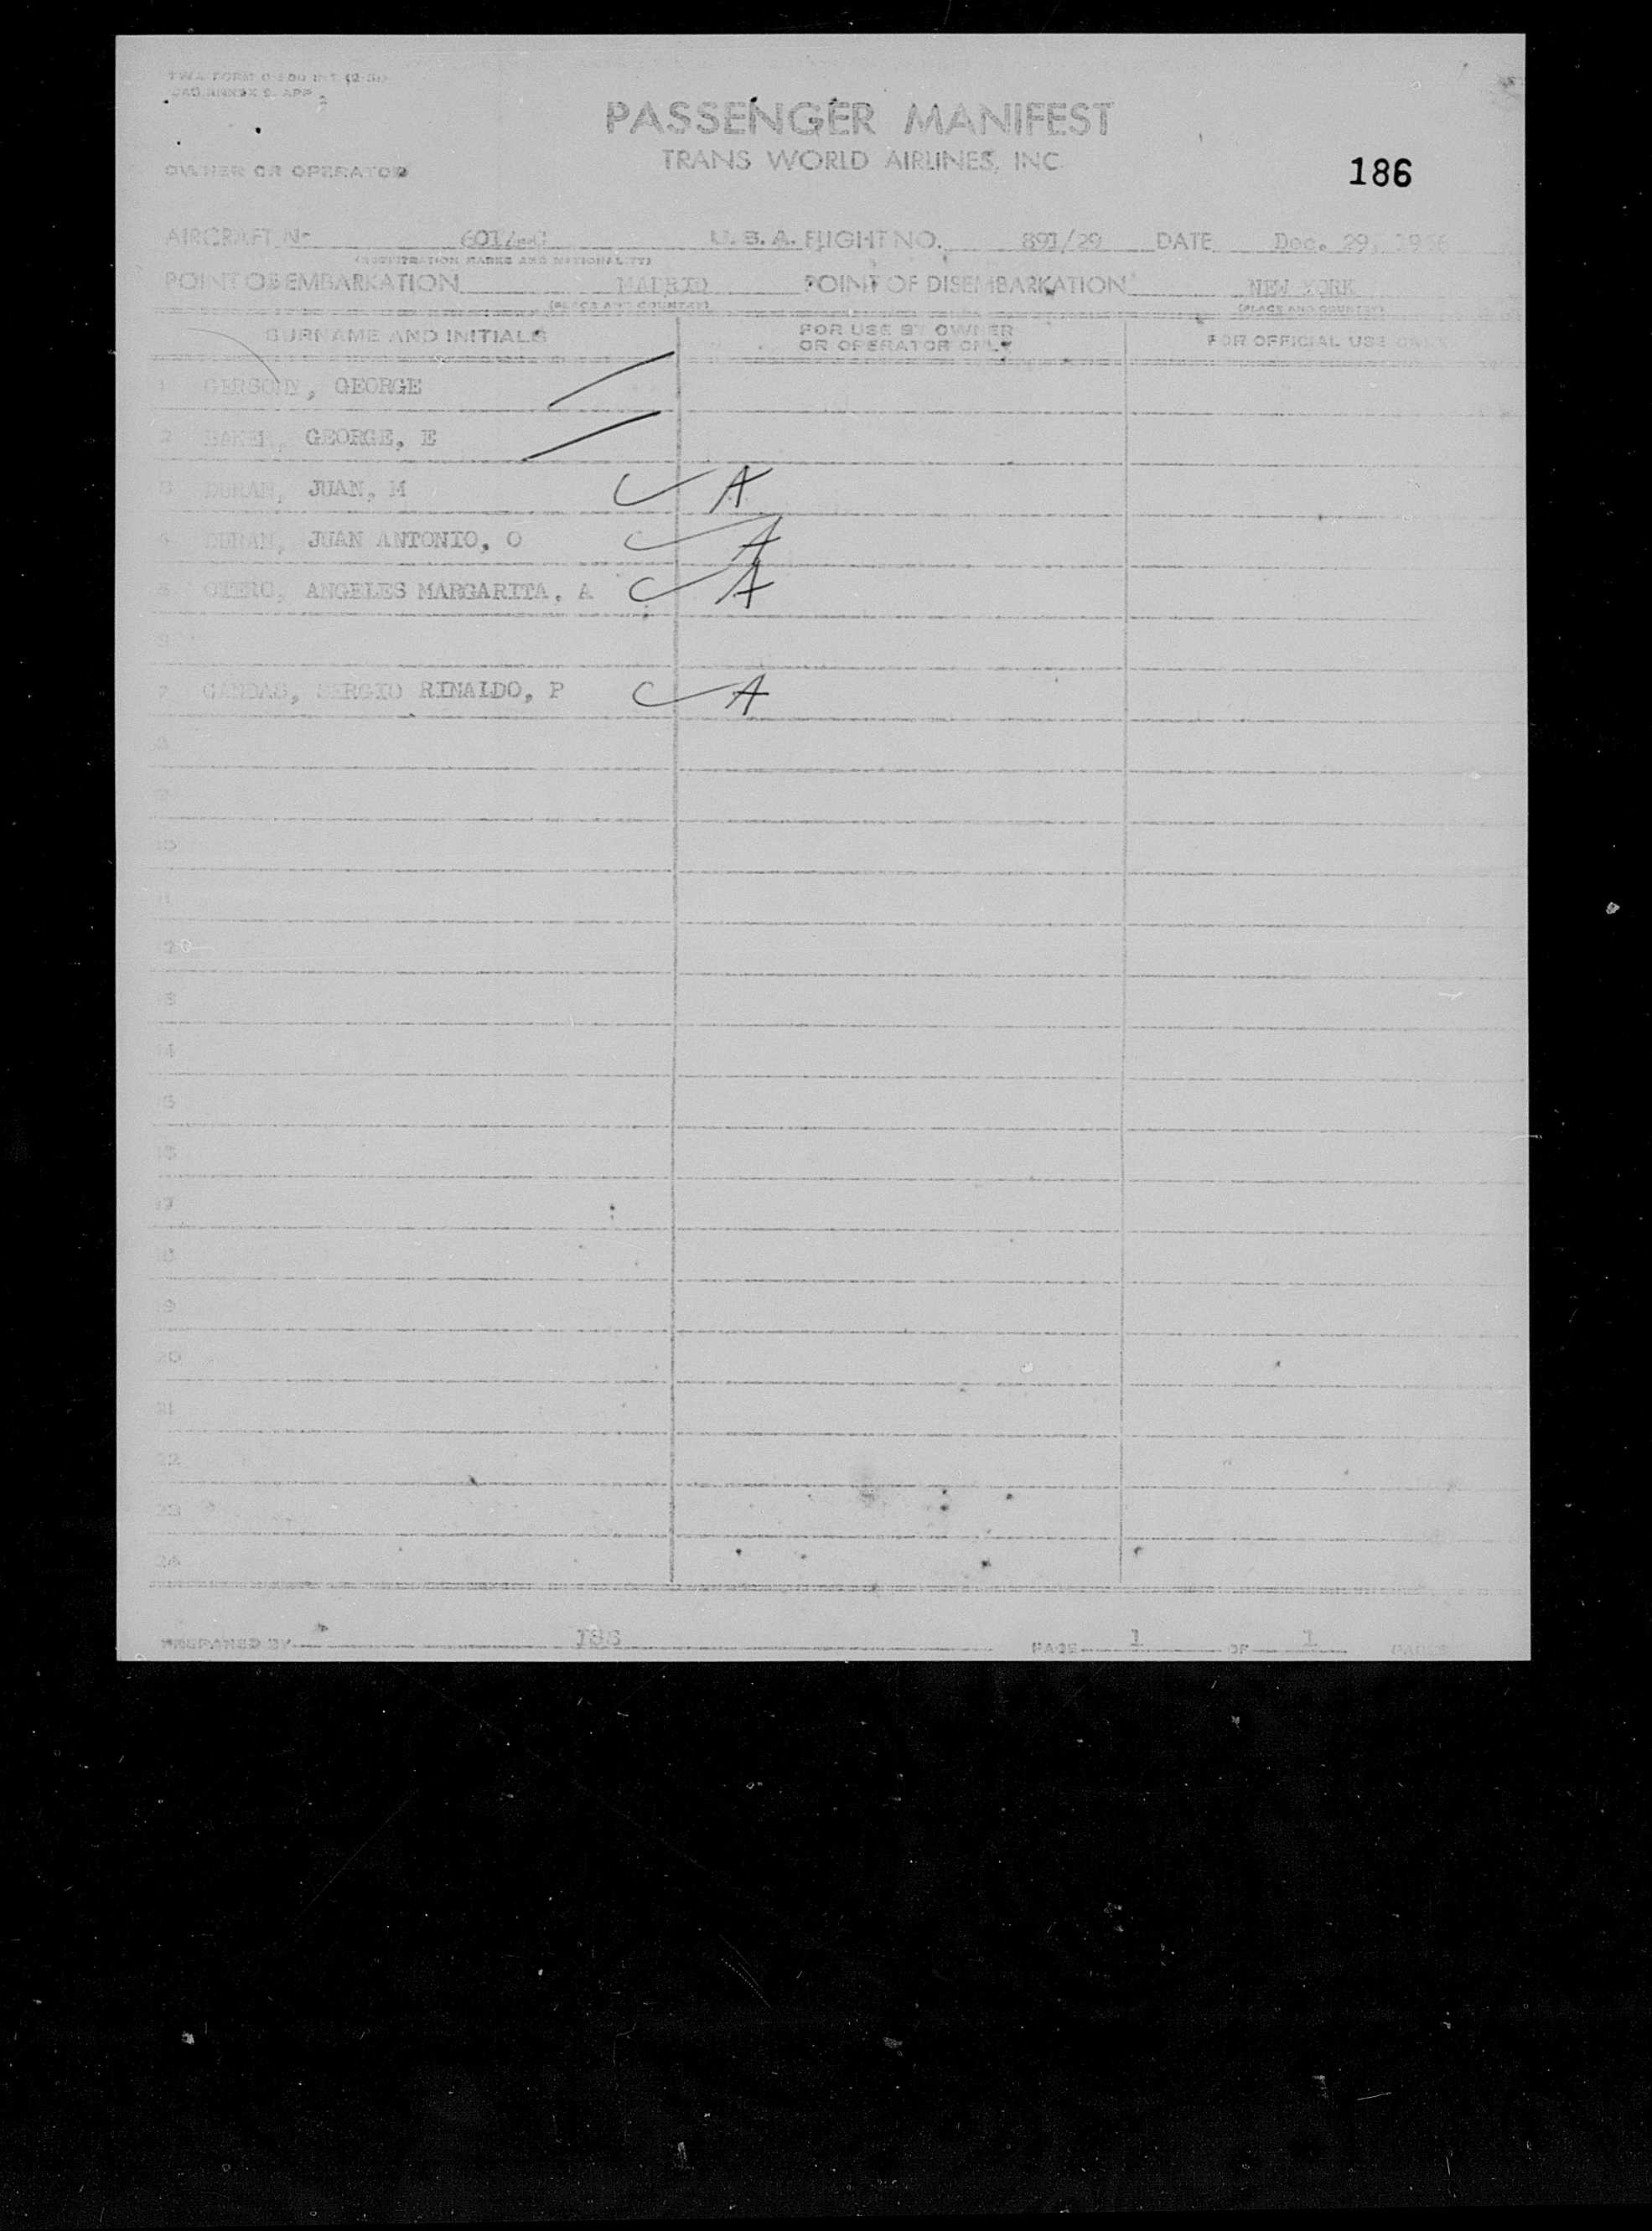 PASSENGER MANIFEST
TRANS WORLD AIRLINES, INC
OWNER OR OPERATOR
186
AIRCRAFT No U. S. A. FLIGHT NO. 891/29 DATE Dec. 29, 1956
(REGISTRATION MARKS AND NATIONALITY)
POINT OF EMBARKATION MADRID POINT OF DISEMBARKATION NEW YORK
(PLACE AND COUNTRY) (PLACE AND COUNTRY)
SURNAME AND INITIALS FOR USE BY OWNER OR OPERATOR ONLY FOR OFFICIAL USE ONLY
1 GEORGE
2 BAKER, GEORGE, E
3 DURAN, JUAN, M A
4 DURAN, JUAN ANTONIO, O A
5 OTERO, ANGELES MARGARITA, A A
7 SERGIO RINALDO, P A
8
9
10
11
12
13
14
15
16
17
18
19
20
21
22
23
24
PREPARED BY PAGE 1 OF 1 PAGES